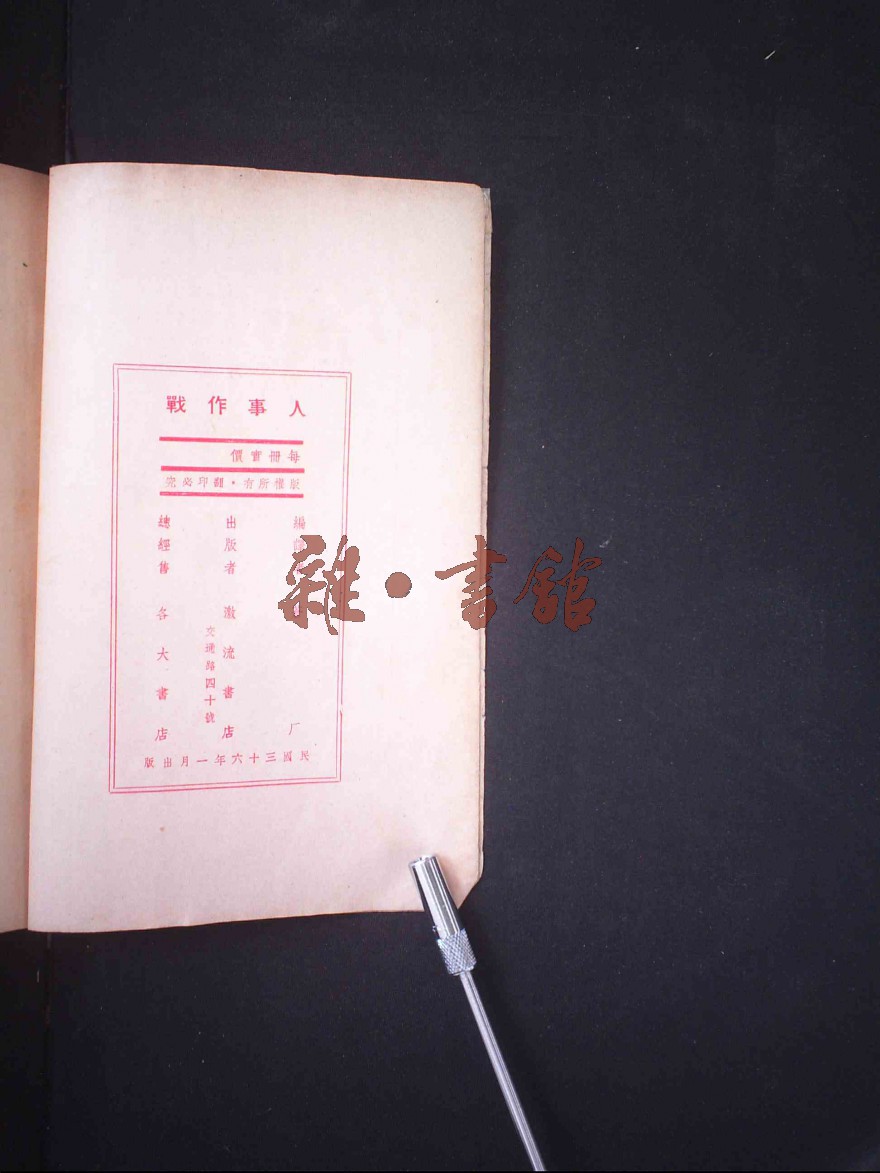 人事作戰
每冊實價
版權所有·翻印必究
編
出版者 激流書店
交通路四十號
總經售 各大書店
民國三十六年一月出版
雜·書館